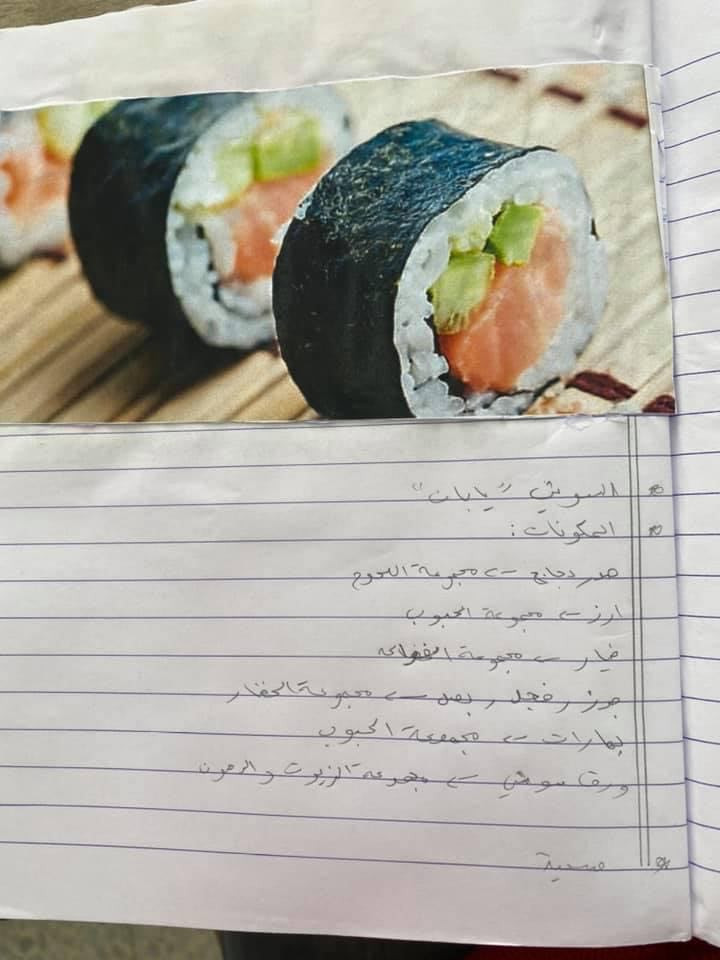 السوشي "يابان"
المكونات :
صدر دجاج ← مجموعة اللحوم
ارز ← مجموعة الحبوب
خيار ← مجموعة
جزر، فجل، بصل ← مجموعة الخضار
بهارات ← مجموعة الحبوب
ورق سوشي ← مجموعة الزيوت والدهون
صحية